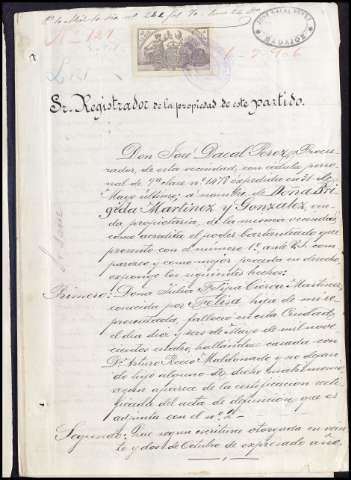 Nº 121
JOSÉ DACAL PEREZ
BADAJOZ
Sr. Registrador de la propiedad de este partido.
Don José Dacal Perez, Procu-
rador, de esta vecindad, con cédula perso-
nal de 9ª clase nº 1478 expedida en 31 de
Mayo último; a nombre de Doña Bri-
gida Martinez y Gonzalez, viu-
da propietaria de la misma vecindad
como acredita el poder bastanteado que
presento con el número 1º, ante V.S. com-
parezco y como mejor proceda en derecho
expongo los siguientes hechos:
Primero: Doña Julia Felipa Cuevas Martinez,
conocida por Felisa hija de mi re-
presentada, falleció en esta Ciudad,
el dia diez y seis de Mayo de mil nove-
cientos cuatro, hallandose casada con
Dn Arturo Rocco Maldonado y no dejan-
do hijo alguno de dicho matrimonio
segun aparece de la certificacion
del acta de defuncion, que es
adjunta con el nº 2º
Segundo: Que segun escritura otorgada en vein-
te y dos de Octubre de expresado año,